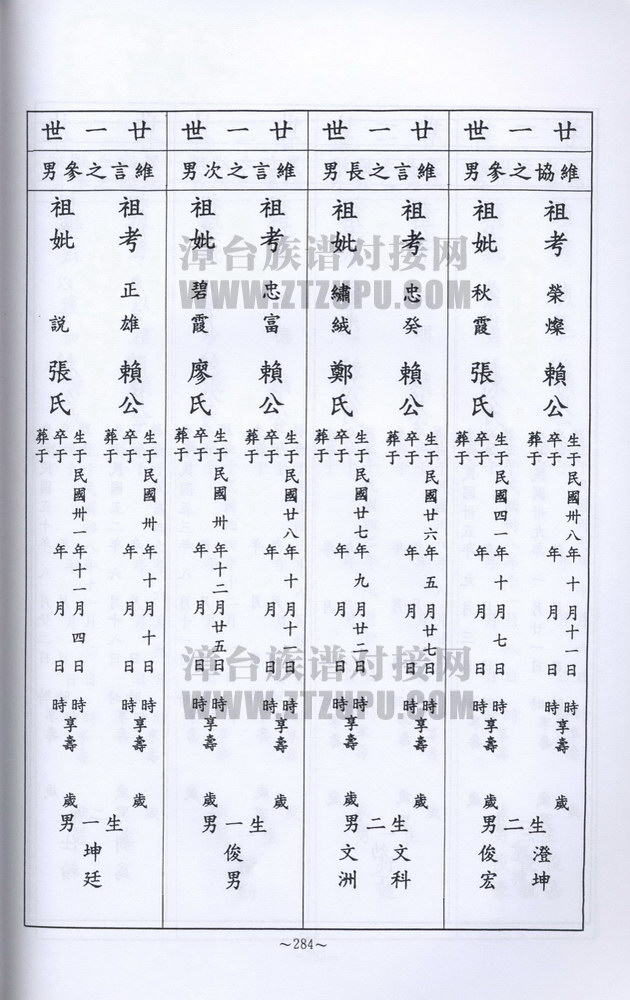 廿一世
維協之參男
祖考 榮燦 賴公
生于民國卅八年十月十一日 時
卒于 年 月 日 時享壽 歲
葬于
祖妣 秋霞 張氏
生于民國四一年十月七日 時
卒于 年 月 日 時享壽 歲
葬于
生二男
澄坤
俊宏
廿一世
維言之長男
祖考 忠癸 賴公
生于民國廿六年五月廿七日 時
卒于 年 月 日 時享壽 歲
葬于
祖妣 繡絨 鄭氏
生于民國廿七年九月廿二日 時
卒于 年 月 日 時享壽 歲
葬于
生二男
文科
文洲
廿一世
維言之次男
祖考 忠富 賴公
生于民國廿八年十月十一日 時
卒于 年 月 日 時享壽 歲
葬于
祖妣 碧霞 廖氏
生于民國卅年十二月廿五日 時
卒于 年 月 日 時享壽 歲
葬于
生一男
俊男
廿一世
維言之參男
祖考 正雄 賴公
生于民國卅年十月十日 時
卒于 年 月 日 時享壽 歲
葬于
祖妣 説 張氏
生于民國卅一年十一月四日 時
卒于 年 月 日 時享壽 歲
葬于
生一男
坤廷
~284~
漳台族谱对接网
WWW.ZTZUPU.COM
漳台族谱对接网
WWW.ZTZUPU.COM